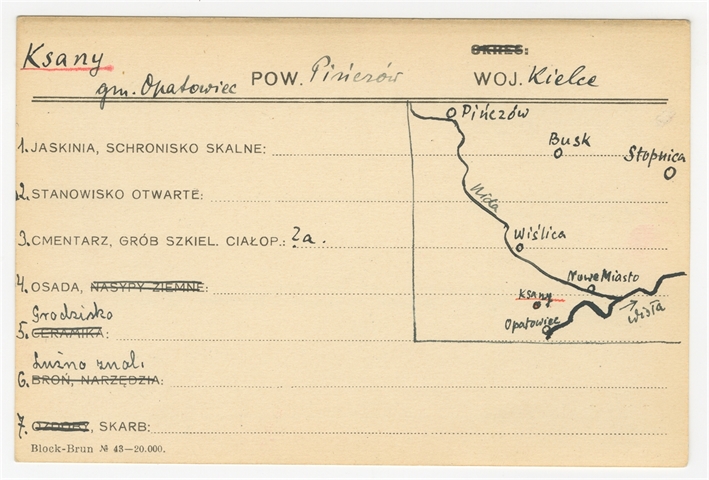 Ksany
gm. Opatowiec POW. Pińczów WOJ. Kielce
OKRES:
1. JASKINIA, SCHRONISKO SKALNE:
2. STANOWISKO OTWARTE:
3. CMENTARZ, GRÓB SZKIEL. CIAŁOP.: ?a.
4. OSADA, NASYPY ZIEMNE:
Grodzisko
5. CERAMIKA:
Luźno znal.
6. BROŃ, NARZĘDZIA:
7. OZDOBY, SKARB:
Block-Brun № 43—20.000.
Pińczów
Busk
Stopnica
Nida
Wiślica
Nowe Miasto
Ksany
Opatowiec
Wisła